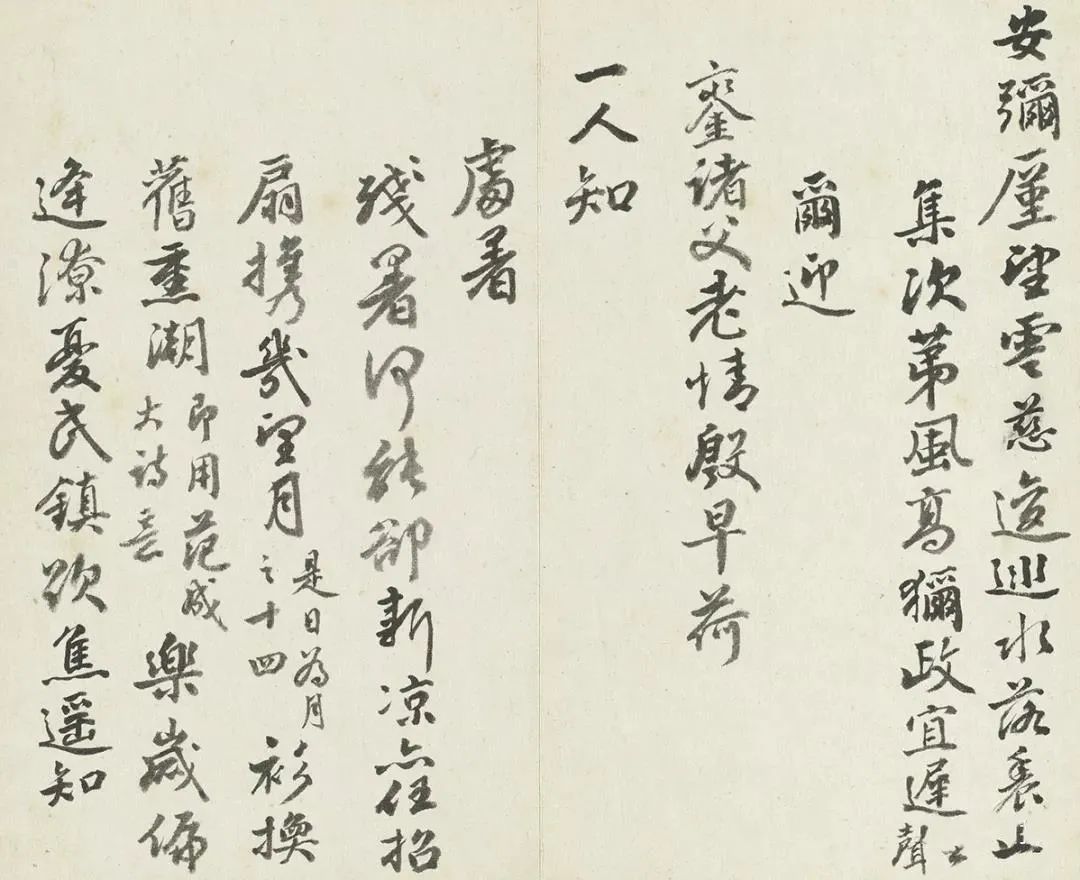 安彌厪望雲慈逡巡水落
集次第風高獮政宜遲去聲
爾迎
鑾諸父老情殷早荷
一人知
處暑
殘暑何能卻新凉亦任招
扇攜幾望月是日為月之十四衫換
舊熏潮即用范成大詩意樂歲偏
逢潦憂民鎮欲焦遥知